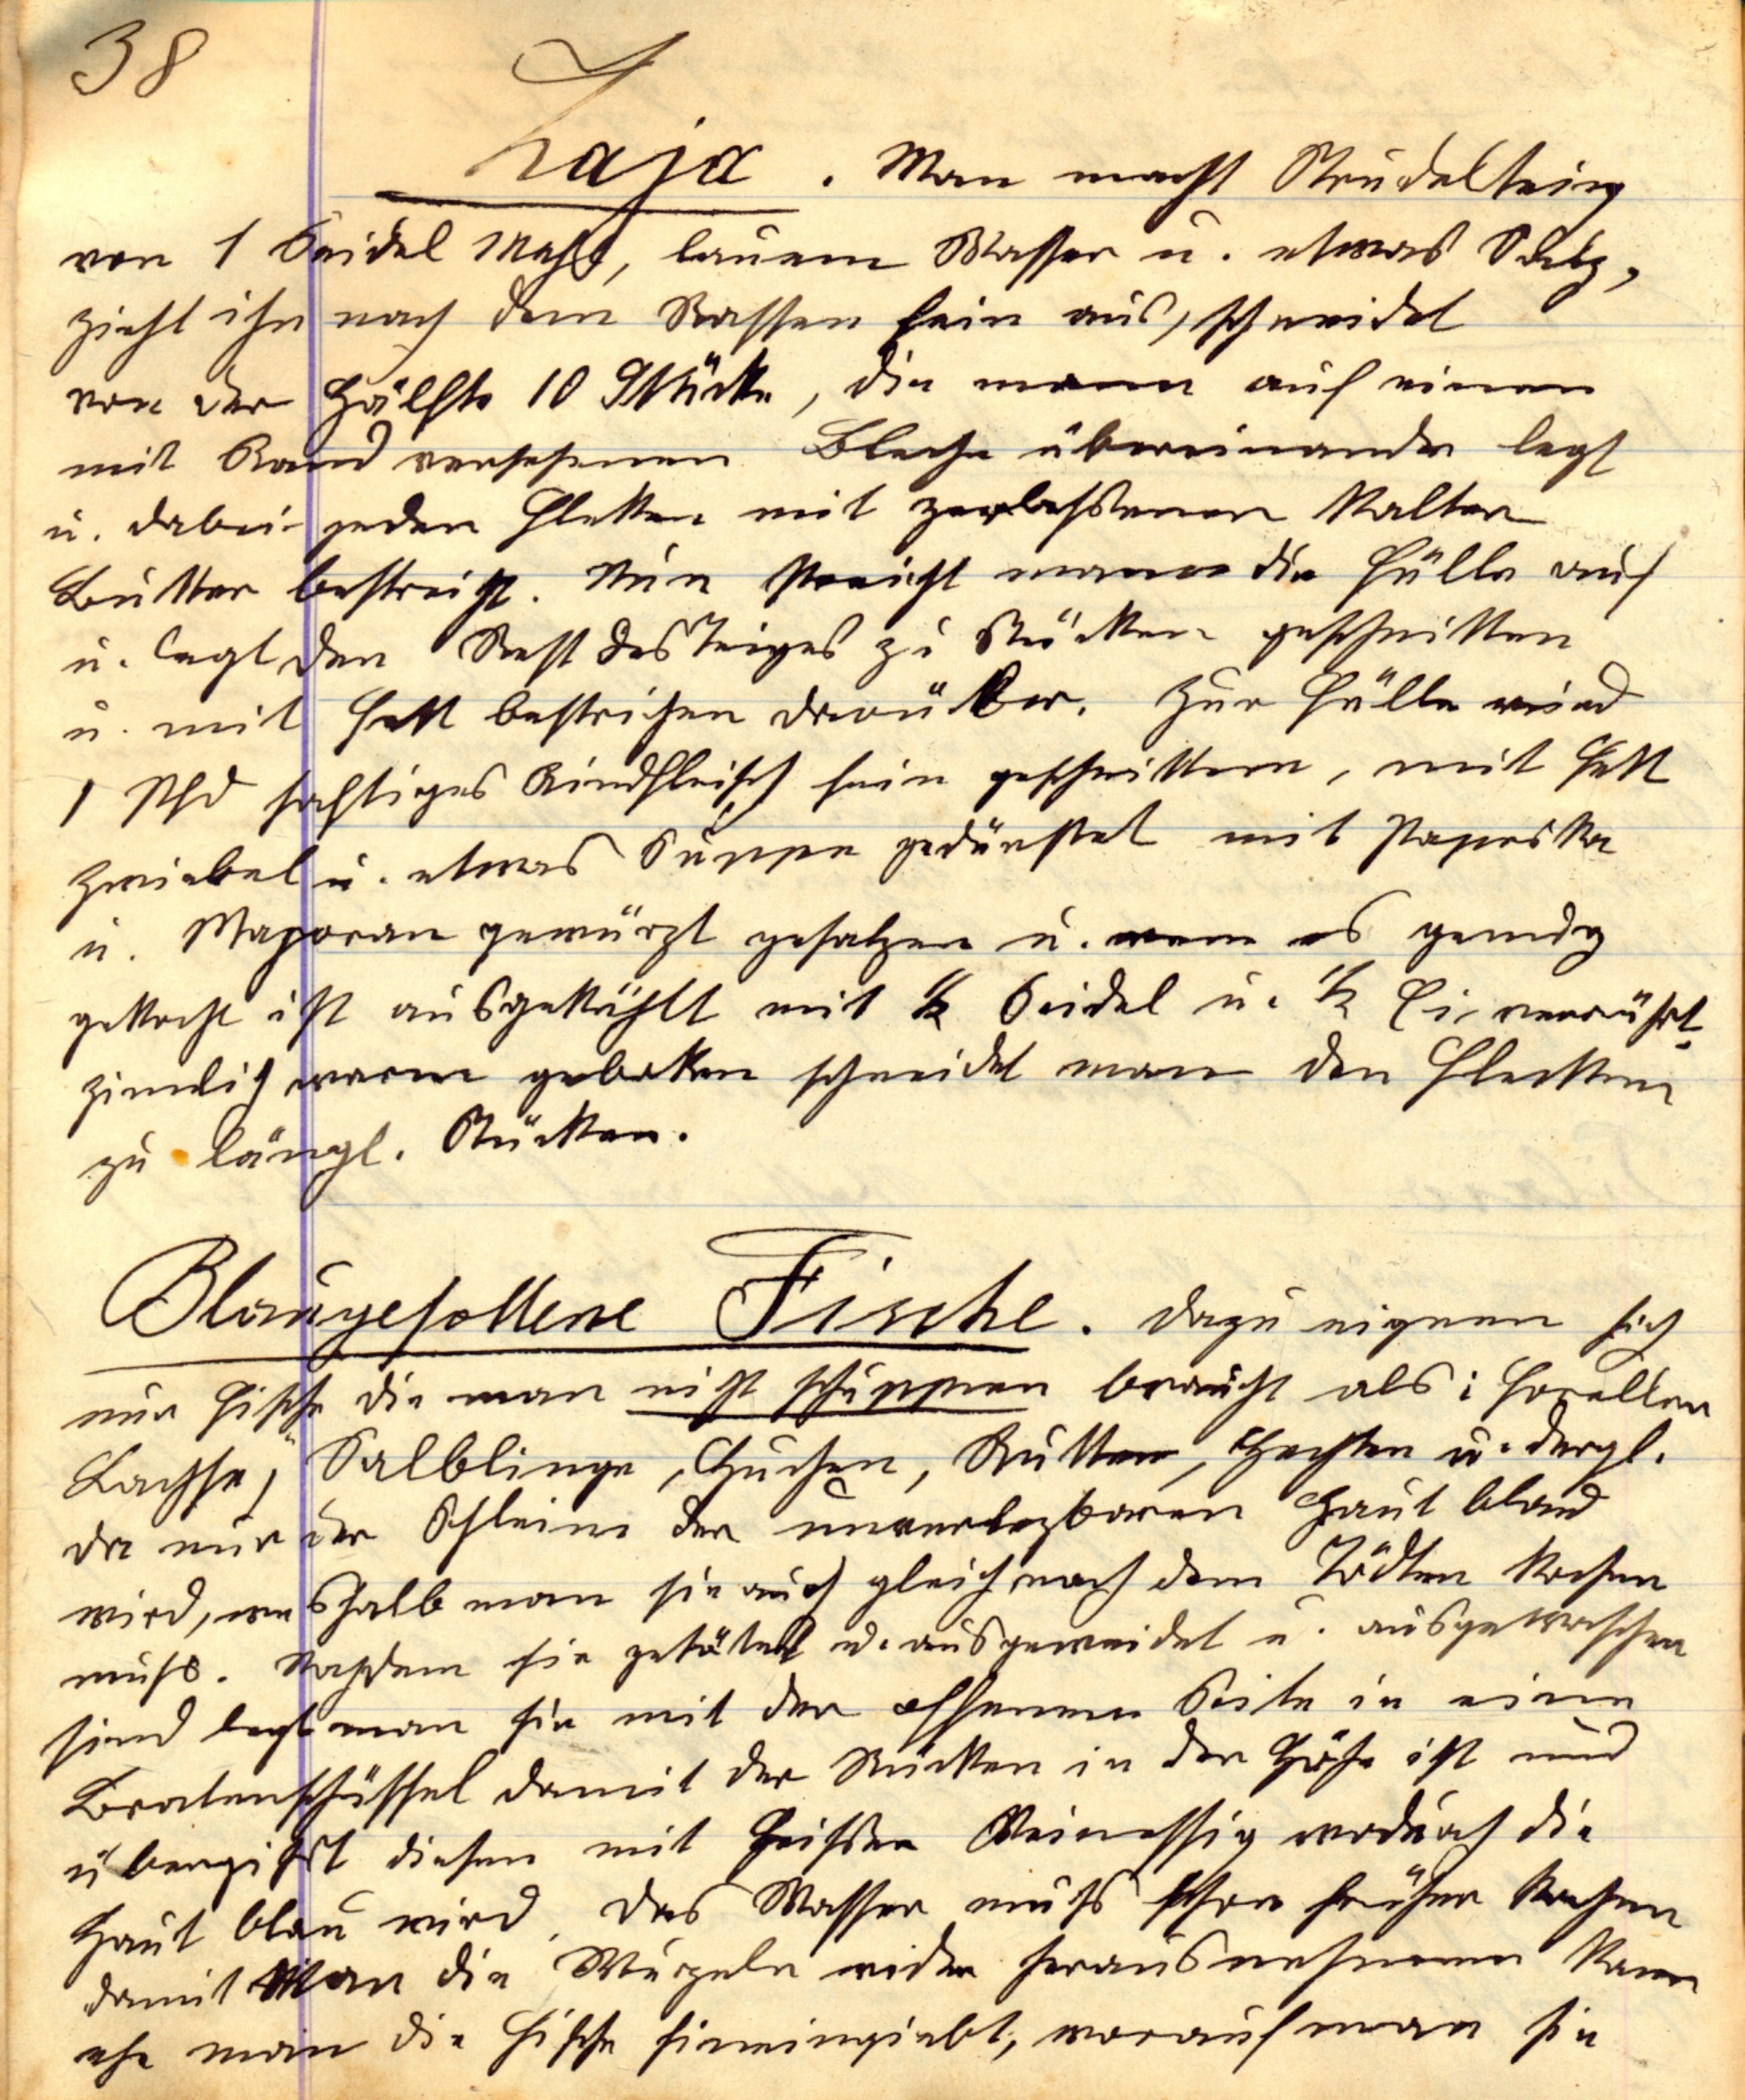 38
Haja. Man macht Strudelteig
von 1 Seidel Mehl, lauem Wasser u. etwas Salz,
zieht ihn nach dem Rasten fein aus, schneidet
von der Hälfte 10 Stücke, die man auf einen
mit Rand versehenen Bleche übereinander legt
u. dabei jeden Flekken mit zerlassener kalter
Butter bestreicht. Nun streicht man die Fülle auf
u. legt den Rest des Teiges zu Stücken geschnitten
u. mit Fett bestrichen darüber. Zur Fülle wird
1 Pfd saftiges Rindfleisch fein geschnitten, mit Fett
Zwiebel u. etwas Suppe gedünstet mit Paprika
u. Majoran gewürzt gesalzen u. wenn es genug
gekocht ist ausgekühlt mit ½ Seidel u. ½ Ei verrührt.
Ziemlich warm gebakken schneidet man den Flecken
zu längl. Stücken.
Blaugesottene Fische. Dazu eignen sich
nur Fische die man nicht schuppen braucht als: Forellen
Lachse, Salblinge, Huchen, Rutten, Hechten u. dergl.
da nur der Schleim der unverlezbaren Haut blau
wird, weshalb man sie auch gleich nach dem Tödten kochen
muss. Nachdem sie getötet u. ausgeweidet u. ausgewaschen
sind legt man sie mit der offenen Seite in eine
Bratenschüssel damit der Rücken in der Höhe ist und
übergießt diesen mit heissen Weinessig wodurch die
Haut blau wird. Das Wasser muss schon früher kochen
damit man die Wurzeln wider herausnehmen kann
ehe man die Fische hineingiebt, worauf man sie